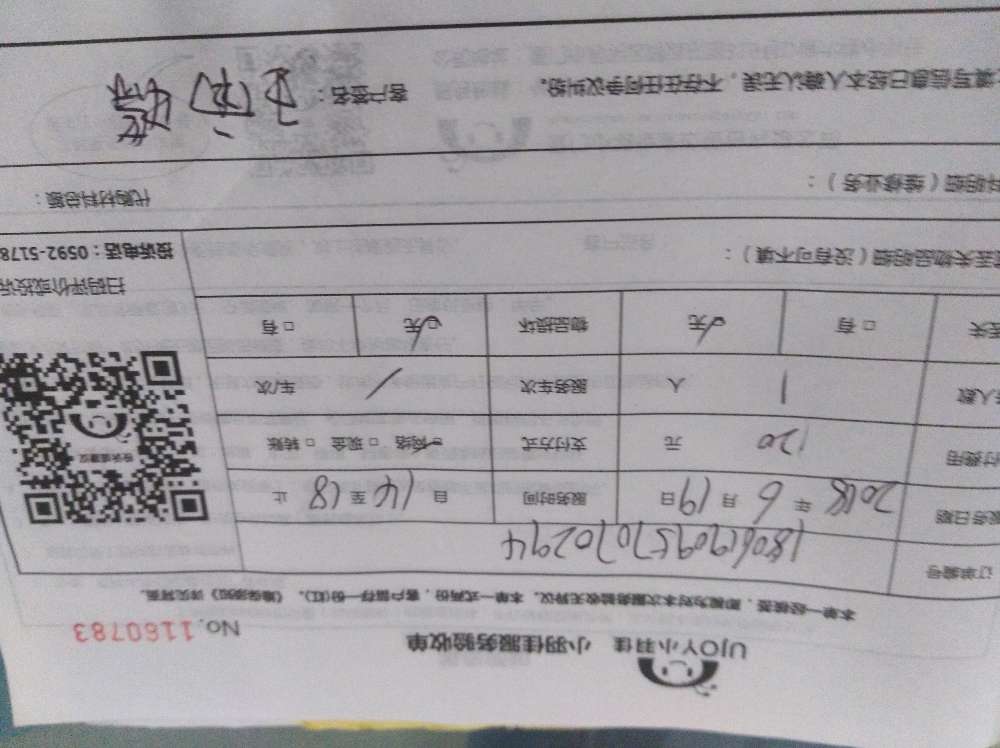 UJOY小羽佳 小羽佳服务验收单 No.1160783
本单一经签署，即视为对本次服务验收无异议。本单一式两份，客户留存一份(红)，《细则》详见背面。
订单编号 180619095707 0294
服务日期 2018 年 6 月 19 日 服务时间 自 14 至 18 止
付费用 120 元 支付方式 网络 □ 现金 □ 转账
人数 1 人 服务车次 / 车/次
丢失 □ 有 ☑无 物品损坏 ☑无 □ 有
丢失物品明细（没有可不填）：
扫码评价或投诉
投诉电话：0592-5178
料明细（维修业务）：
代购材料总额：
填写信息已经本人确认无误，不存在任何争议纠纷。 客户签名：